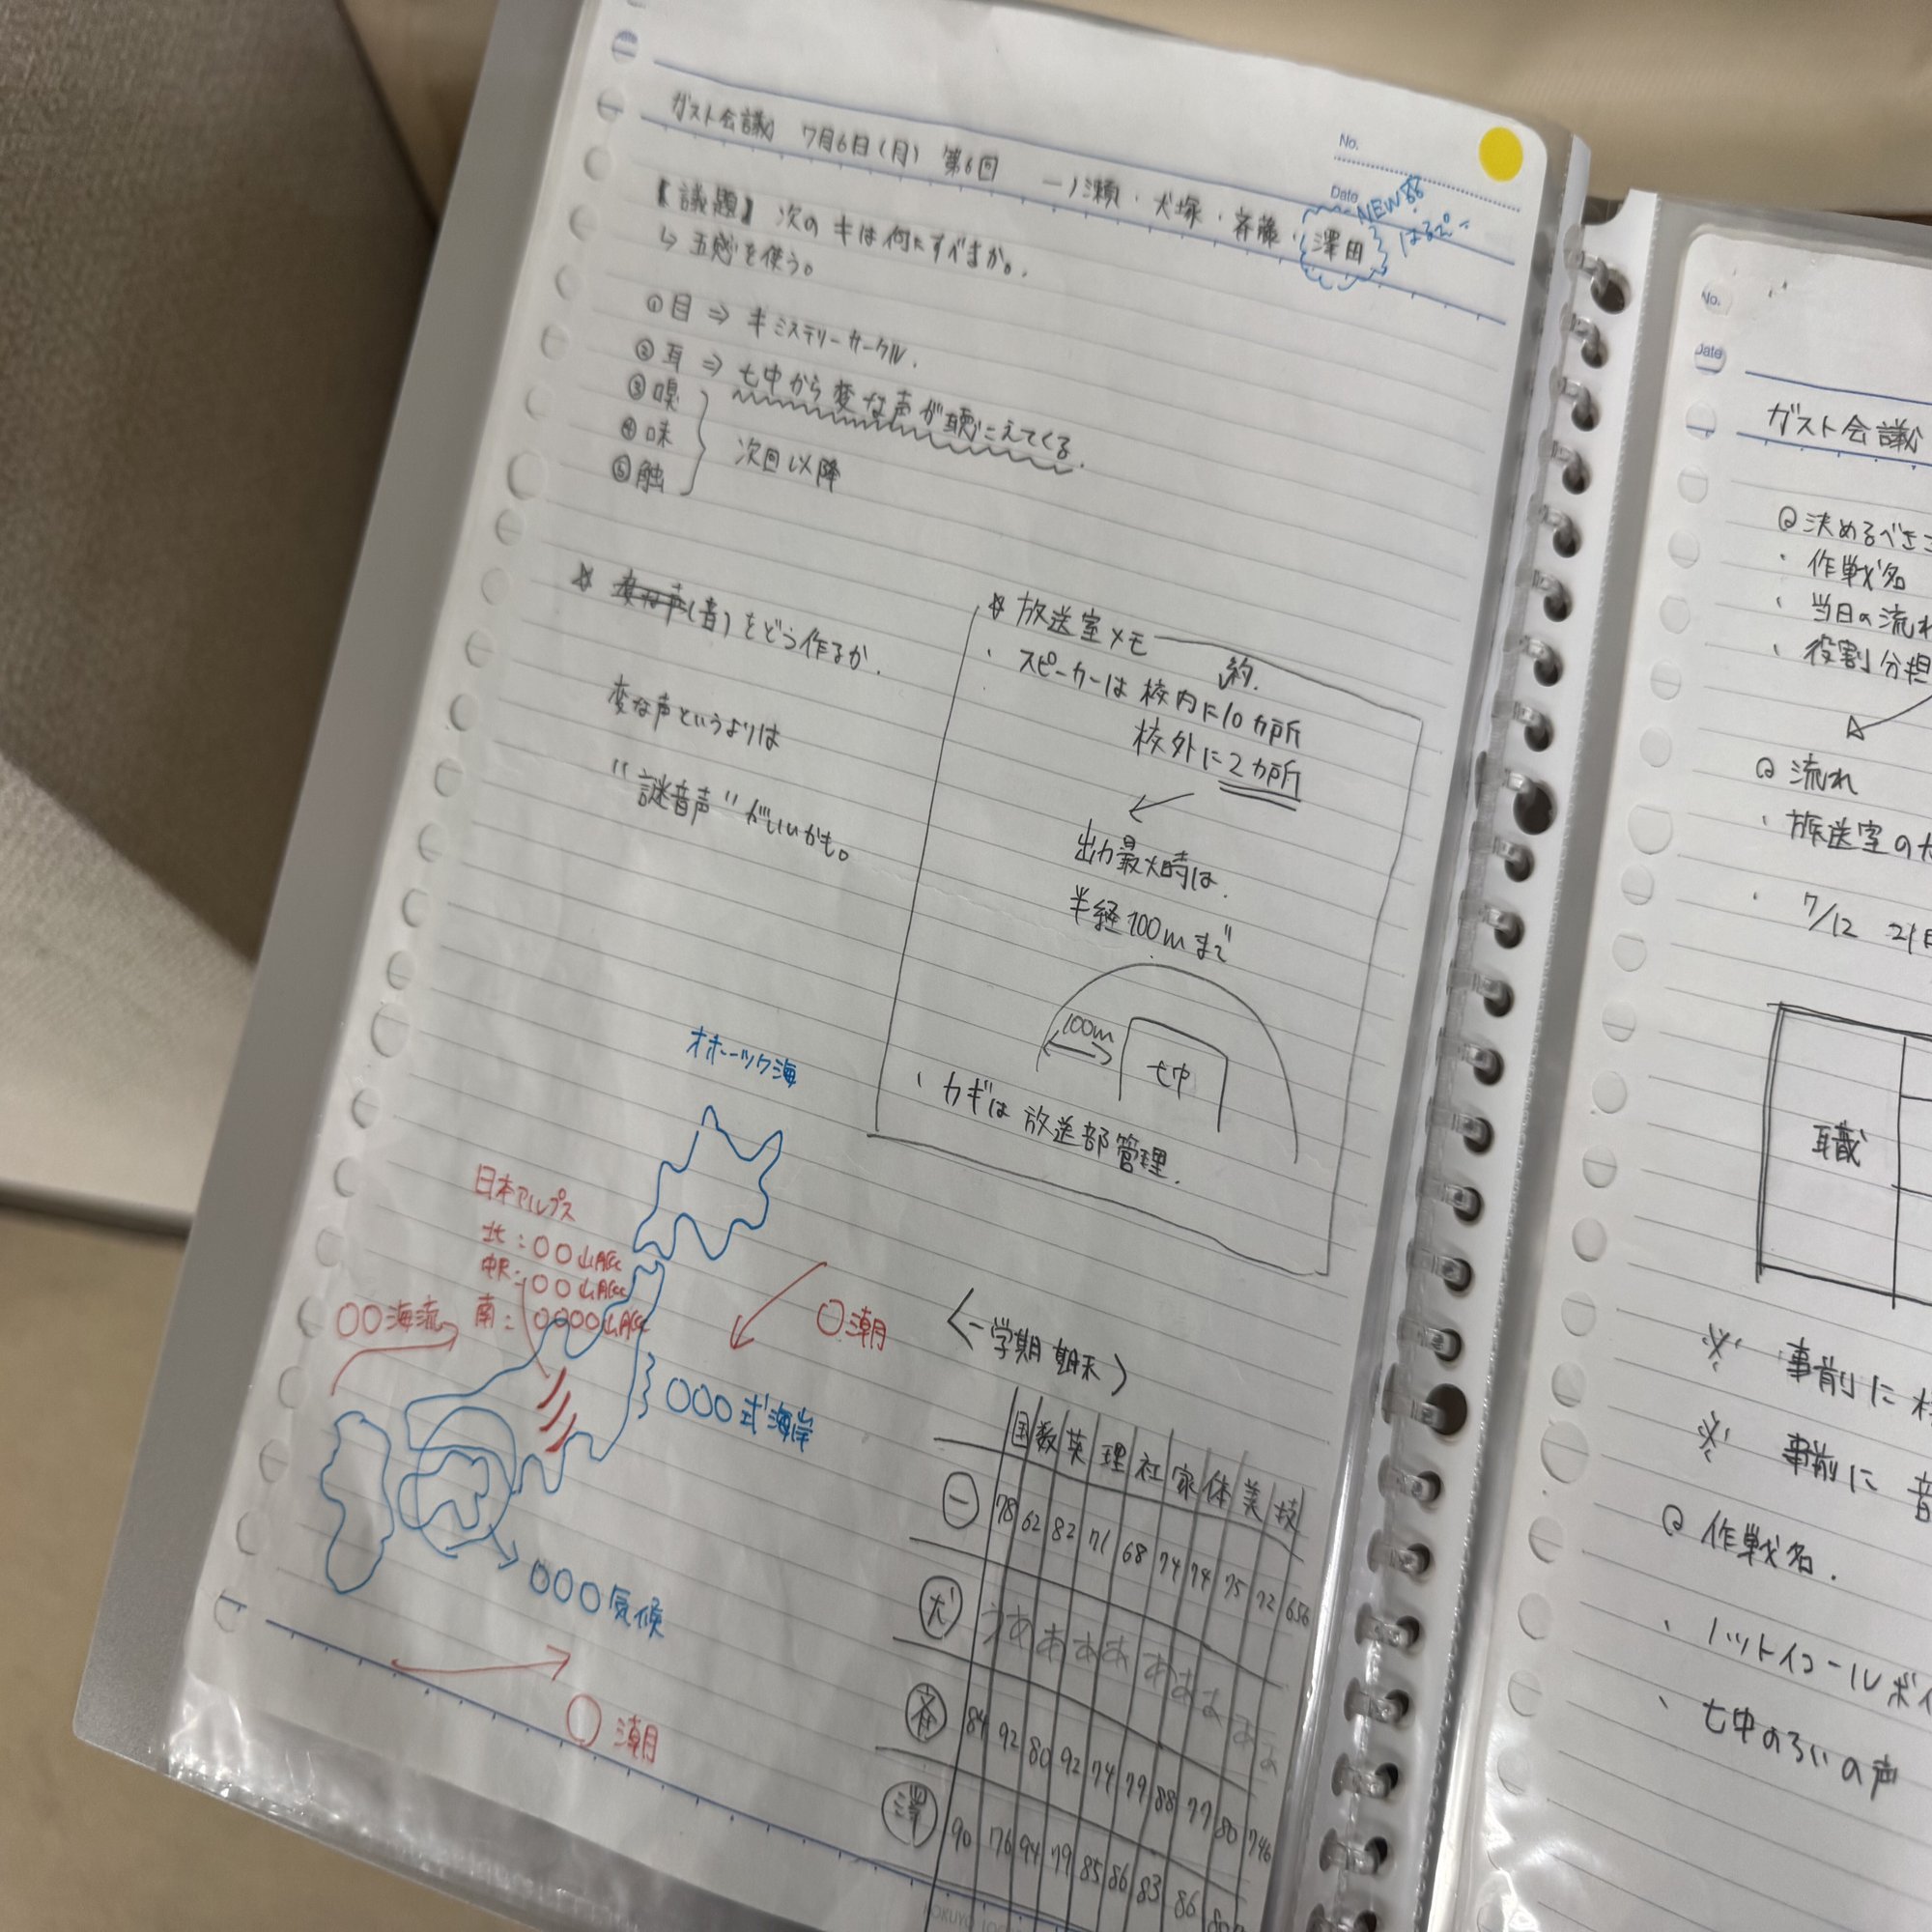 No.
Date
NEW!!
ガスト会議 7月6日(月) 第6回 一ノ瀬・犬塚・斉藤・澤田
【議題】次のキは何にすべきか。
↳ 五感を使う。
①目 ⇒ キミステリーサークル.
②耳 ⇒ 七中から変な声が聴こえてくる.
③嗅
④味
⑤触
次回以降
変な声(音)をどう作るか.
変な声というよりは
"謎音声"がいいかも。
☆放送室メモ
・スピーカーは校内に10ヵ所
約.
校外に2ヵ所
出力最大時は.
半経100mまで
100m
七中
・カギは放送部管理.
オホーツク海
日本アルプス
北:〇〇山脈
中央:〇〇山脈
南:〇〇〇〇山脈
〇〇海流
〇潮
〇〇〇式海岸
〇〇〇気候
〇潮
〈一学期 期末〉
国 数 英 理 社 家 体 美 技
一 78 62 82 71 68 74 74 75 72 656
犬 うあああああああああ
斉 84 92 80 92 74 79 88 77 80 746
澤 90 76 94 79 85 86 83 86
No.
Date
ガスト会議
決めるべき
・作戦名
・当日の流れ
・役割分担
流れ
・放送室の
・7/12 21日
職
※ 事前に
※ 事前に 音
作戦名.
・ノットイコールボイ
・七中のろいの声